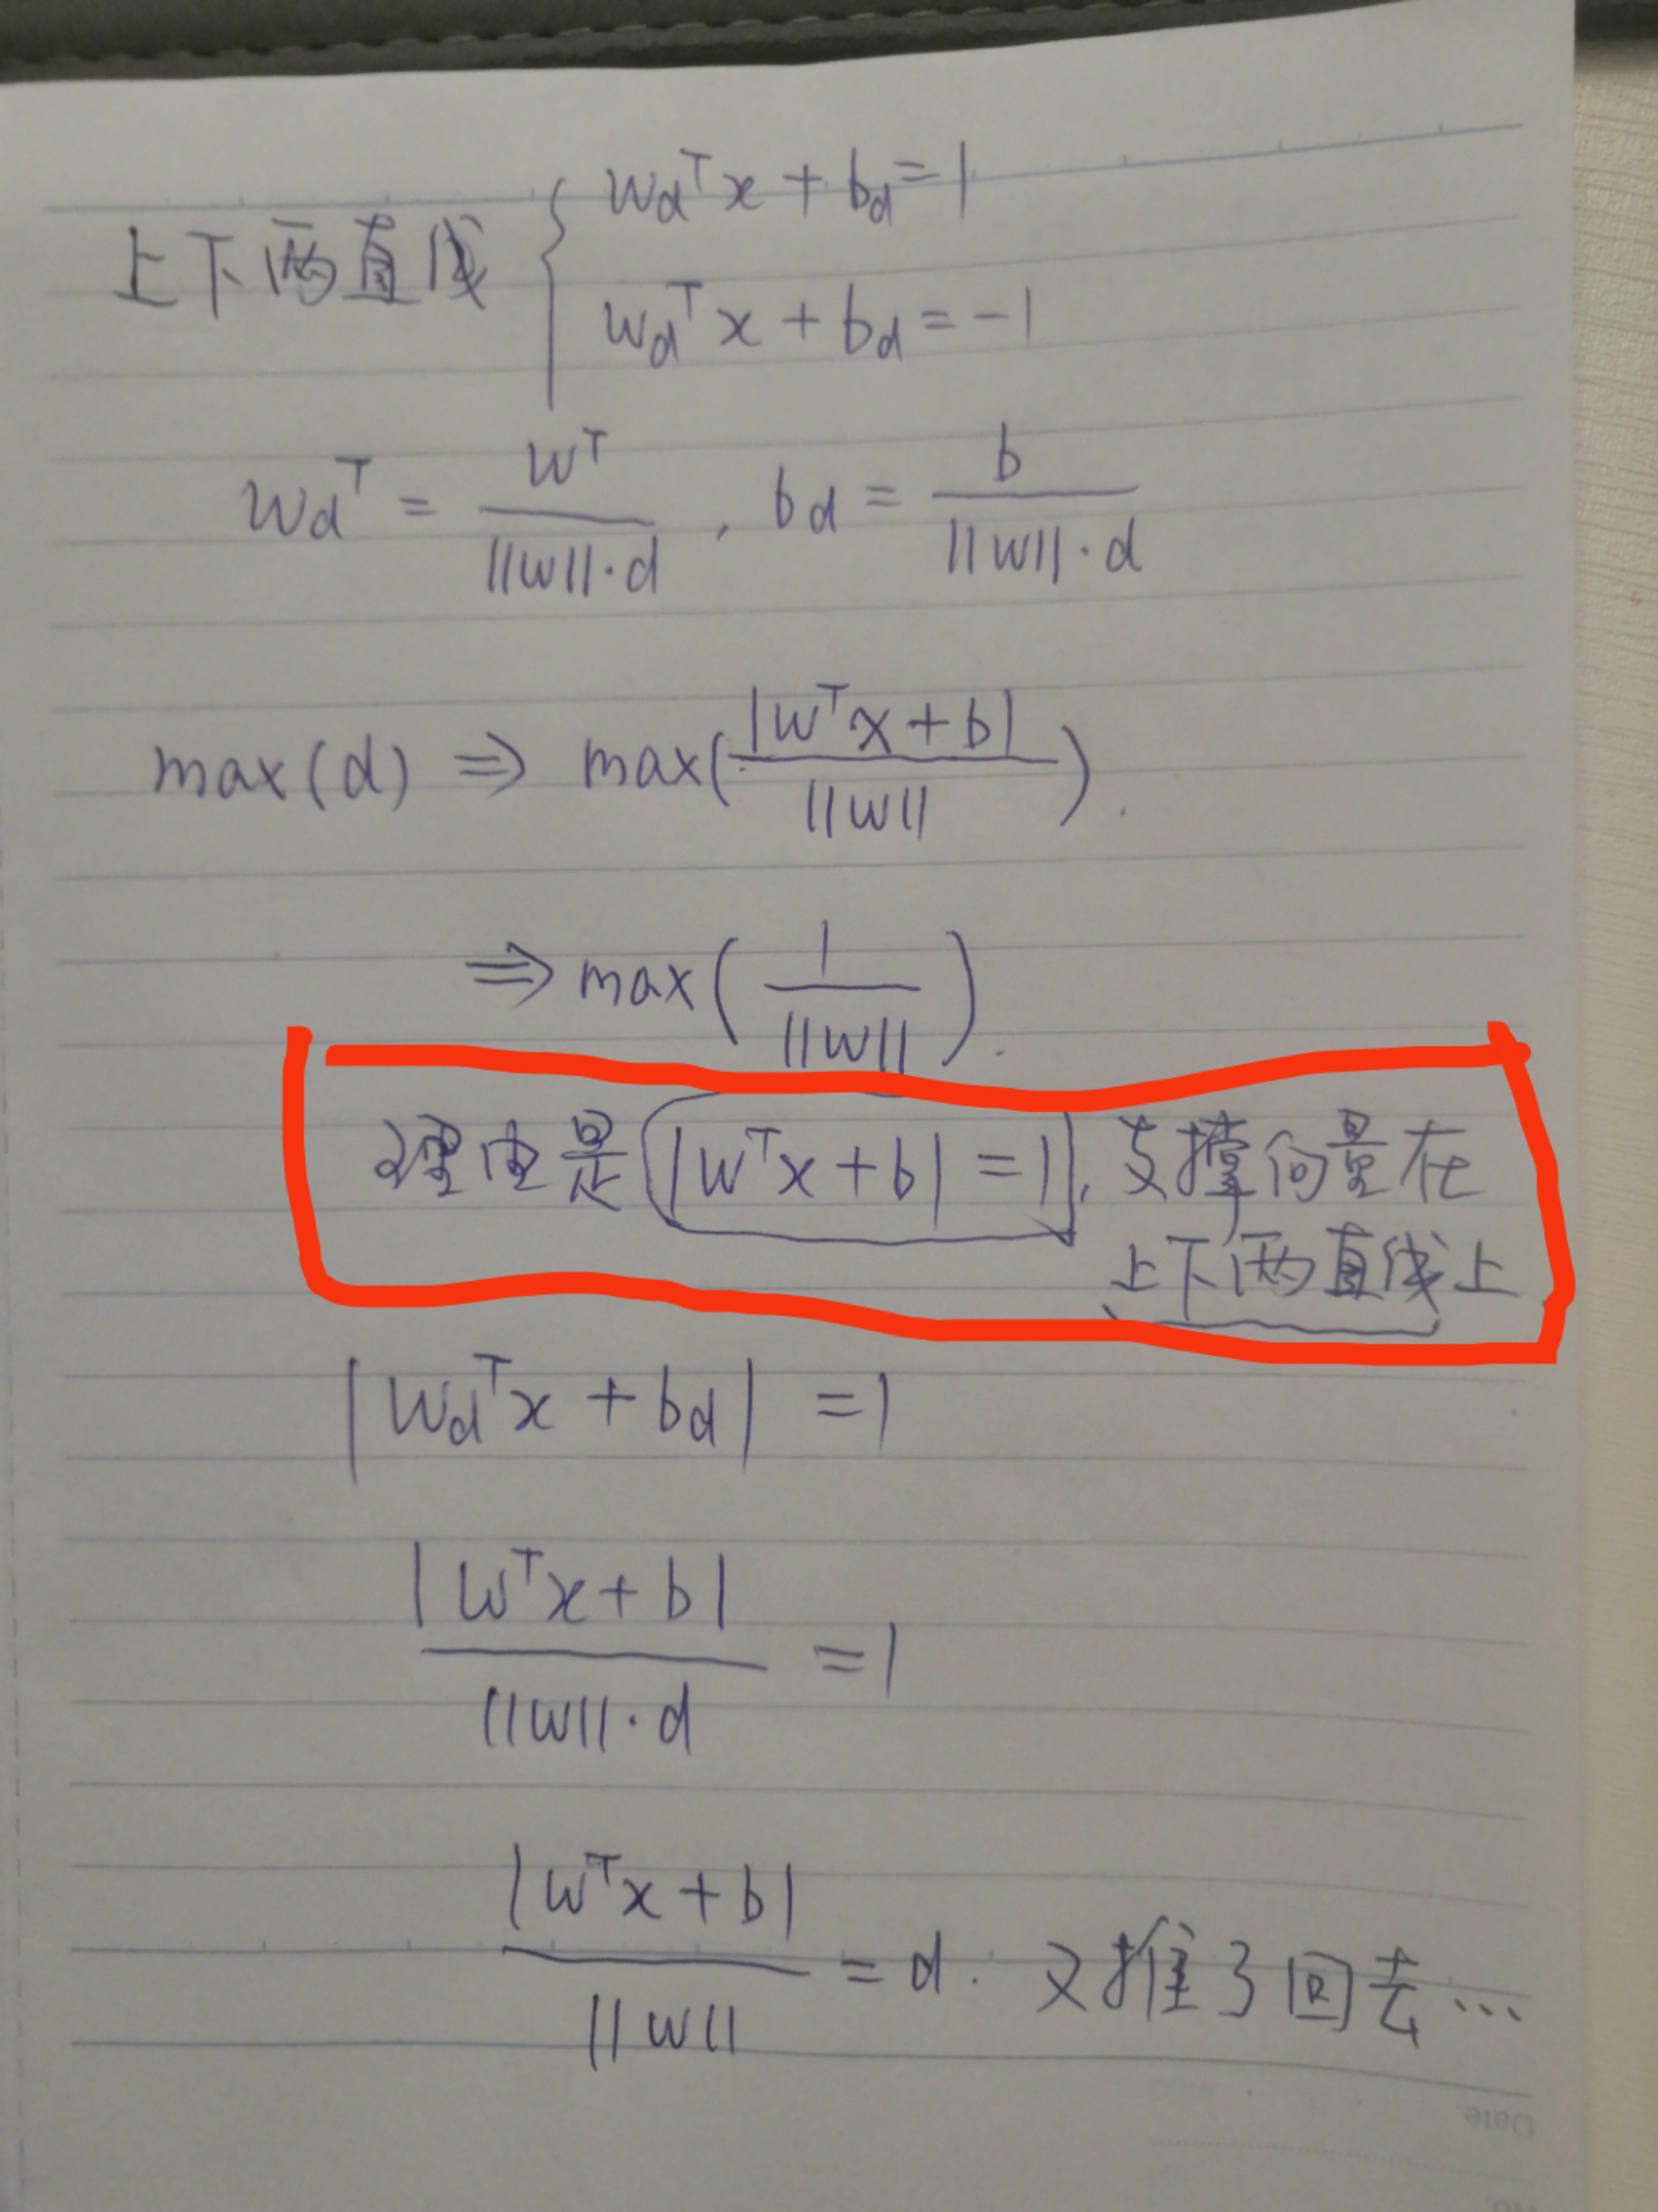 上下两直线 { w_d^T x + b_d = 1
w_d^T x + b_d = -1
w_d^T = w^T / (||w||·d) , b_d = b / (||w||·d)
max(d) ⇒ max( |w^T x + b| / ||w|| ).
⇒ max( 1 / ||w|| ).
理由是 |w^T x + b| = 1, 支撑向量在
上下两直线上
|w_d^T x + b_d| = 1
|w^T x + b| / (||w||·d) = 1
|w^T x + b| / ||w|| = d. 又推了回去…
Date.
No.